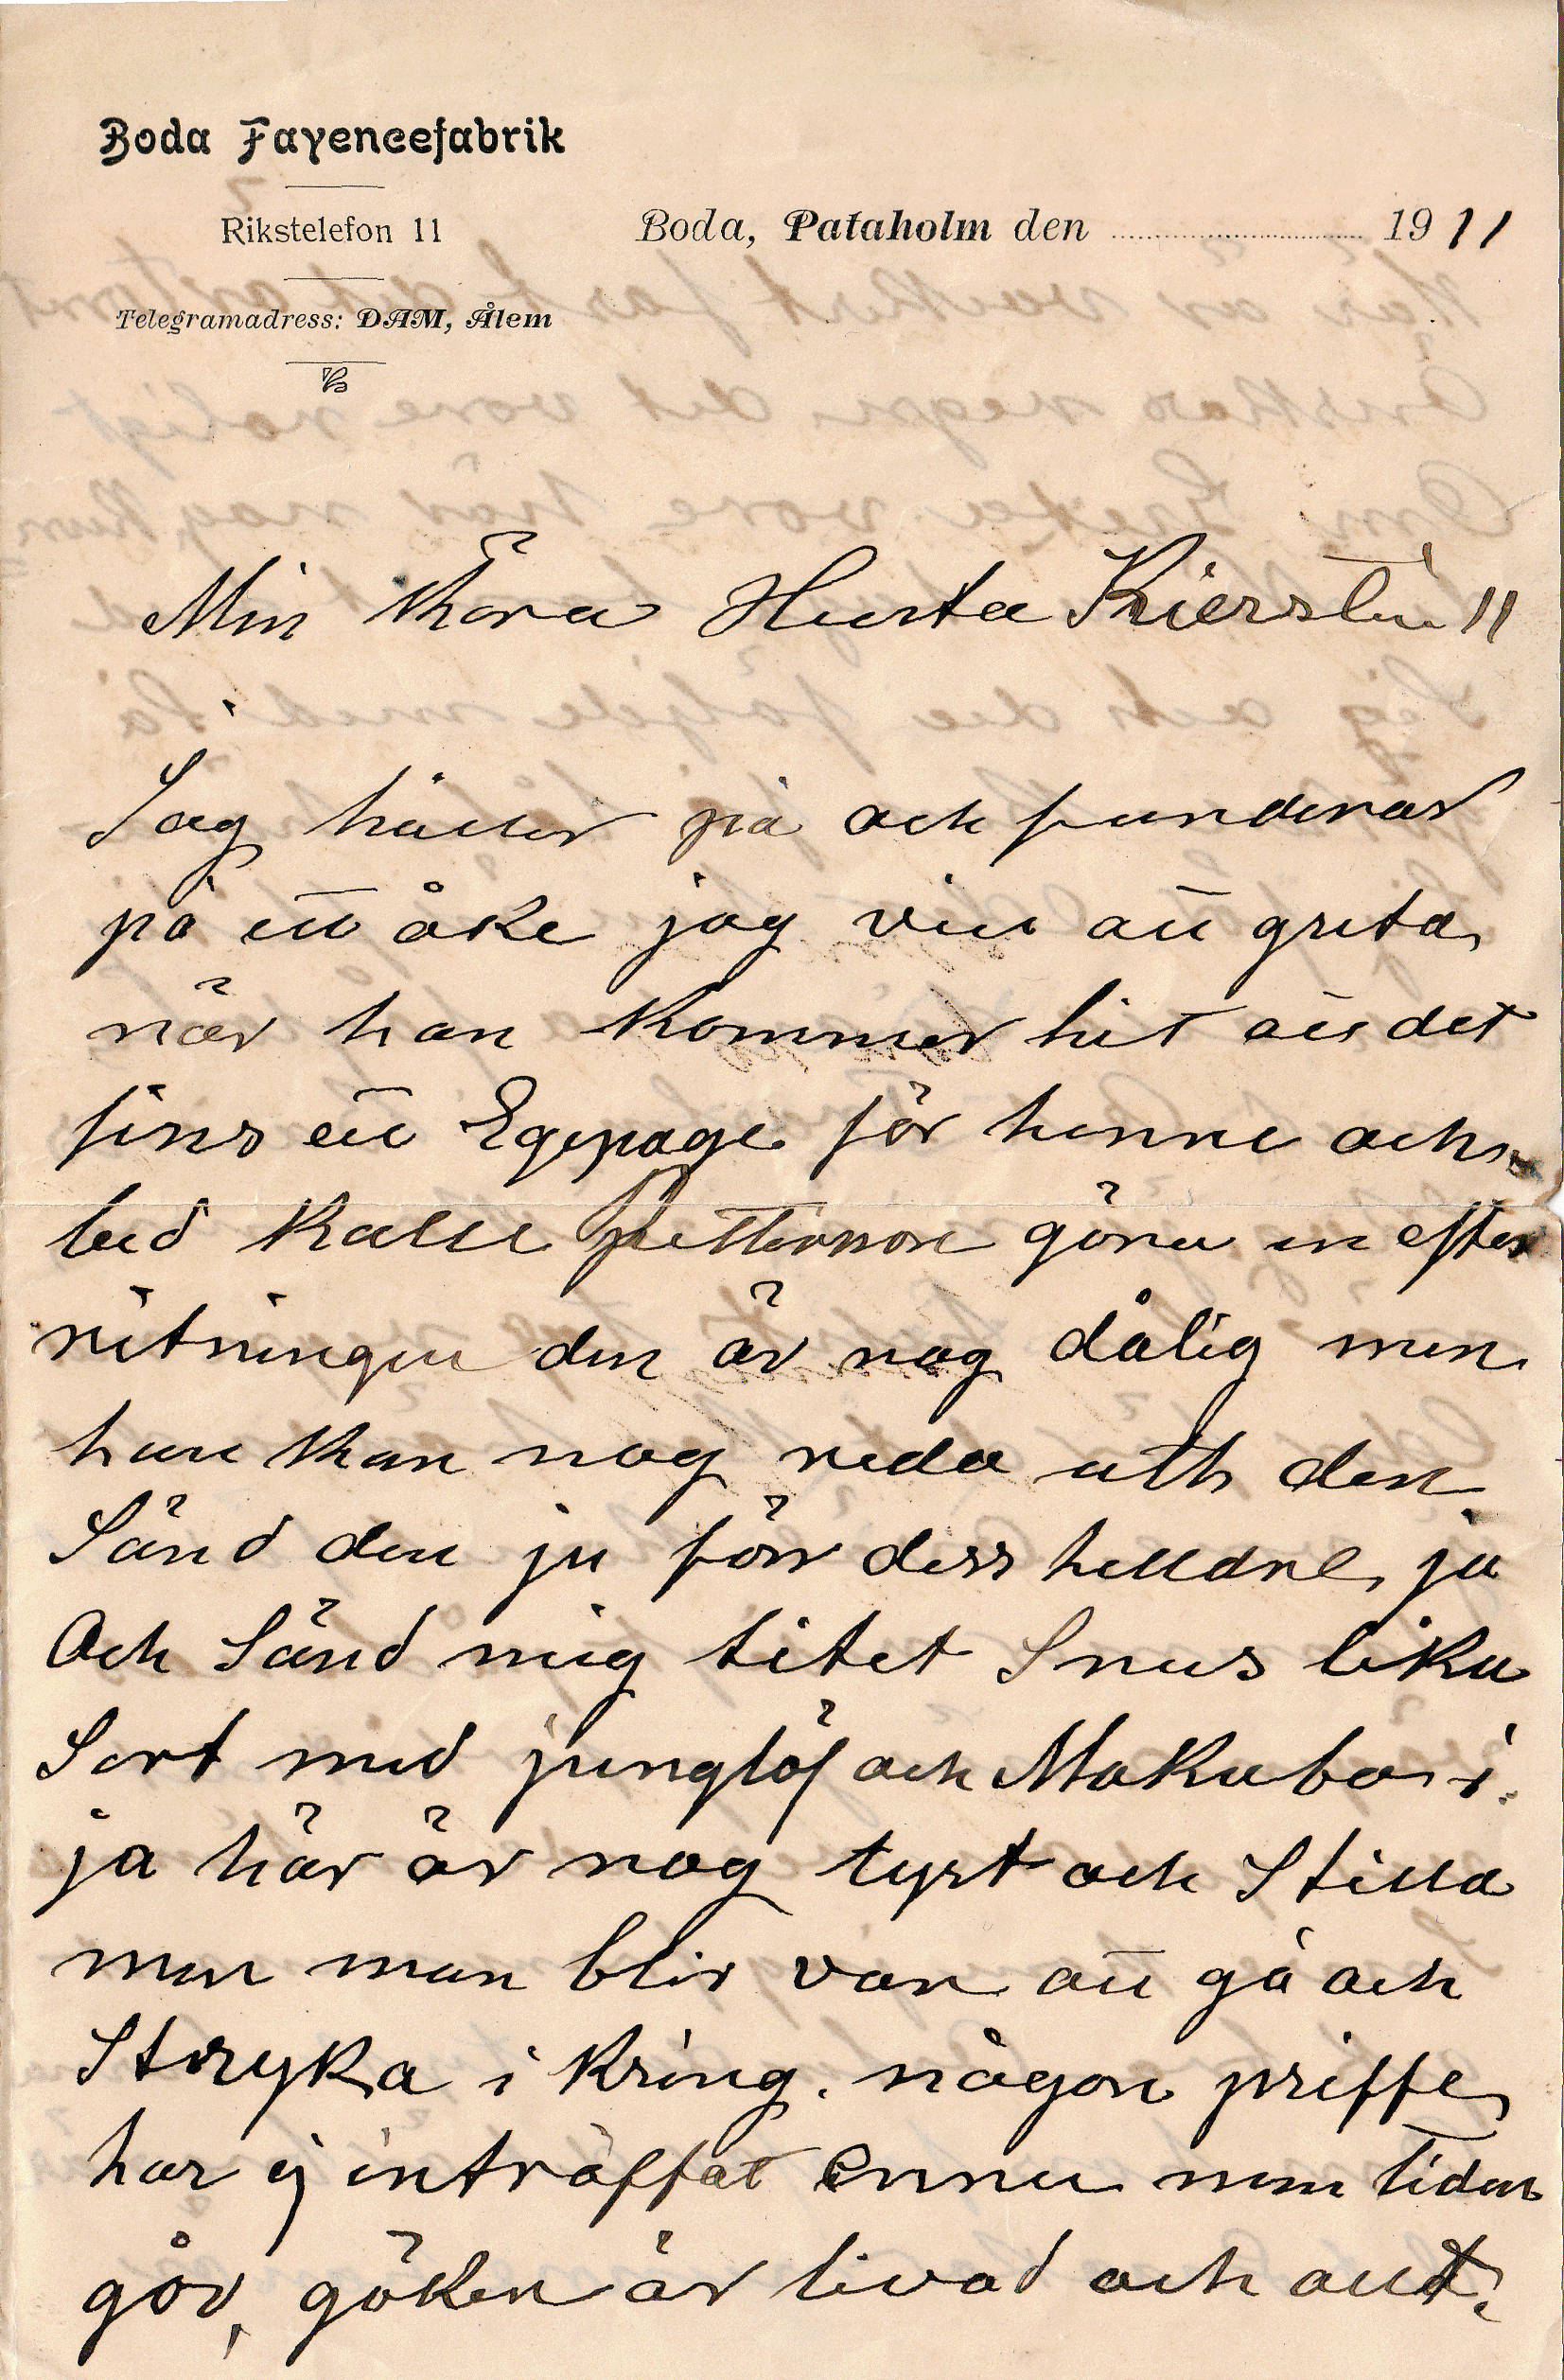 Boda Fayencefabrik
Rikstelefon 11
Boda, Pataholm den 1911
Telegramadress: DAM, Ålem
Min Kära Husta Kierstin
Jag håller på och funderar
på ett åke jag vill att greta
när hon kommer hit att det
fins ett Egepage för henne och
bed Kalle Pettersson göra en efter
ritningen den är nog dålig men
han kan nog reda uth den
Sänd den ju förr dess helldre ja
Och Sänd mig litet Snus lika
Sort med junglöf och Makuba i
ja här är nog tyst och Stilla
men man blir van att gå och
Stryka i Kring. någon priffe
har ej inträffat ennu men tiden
går, göken är livad och allt